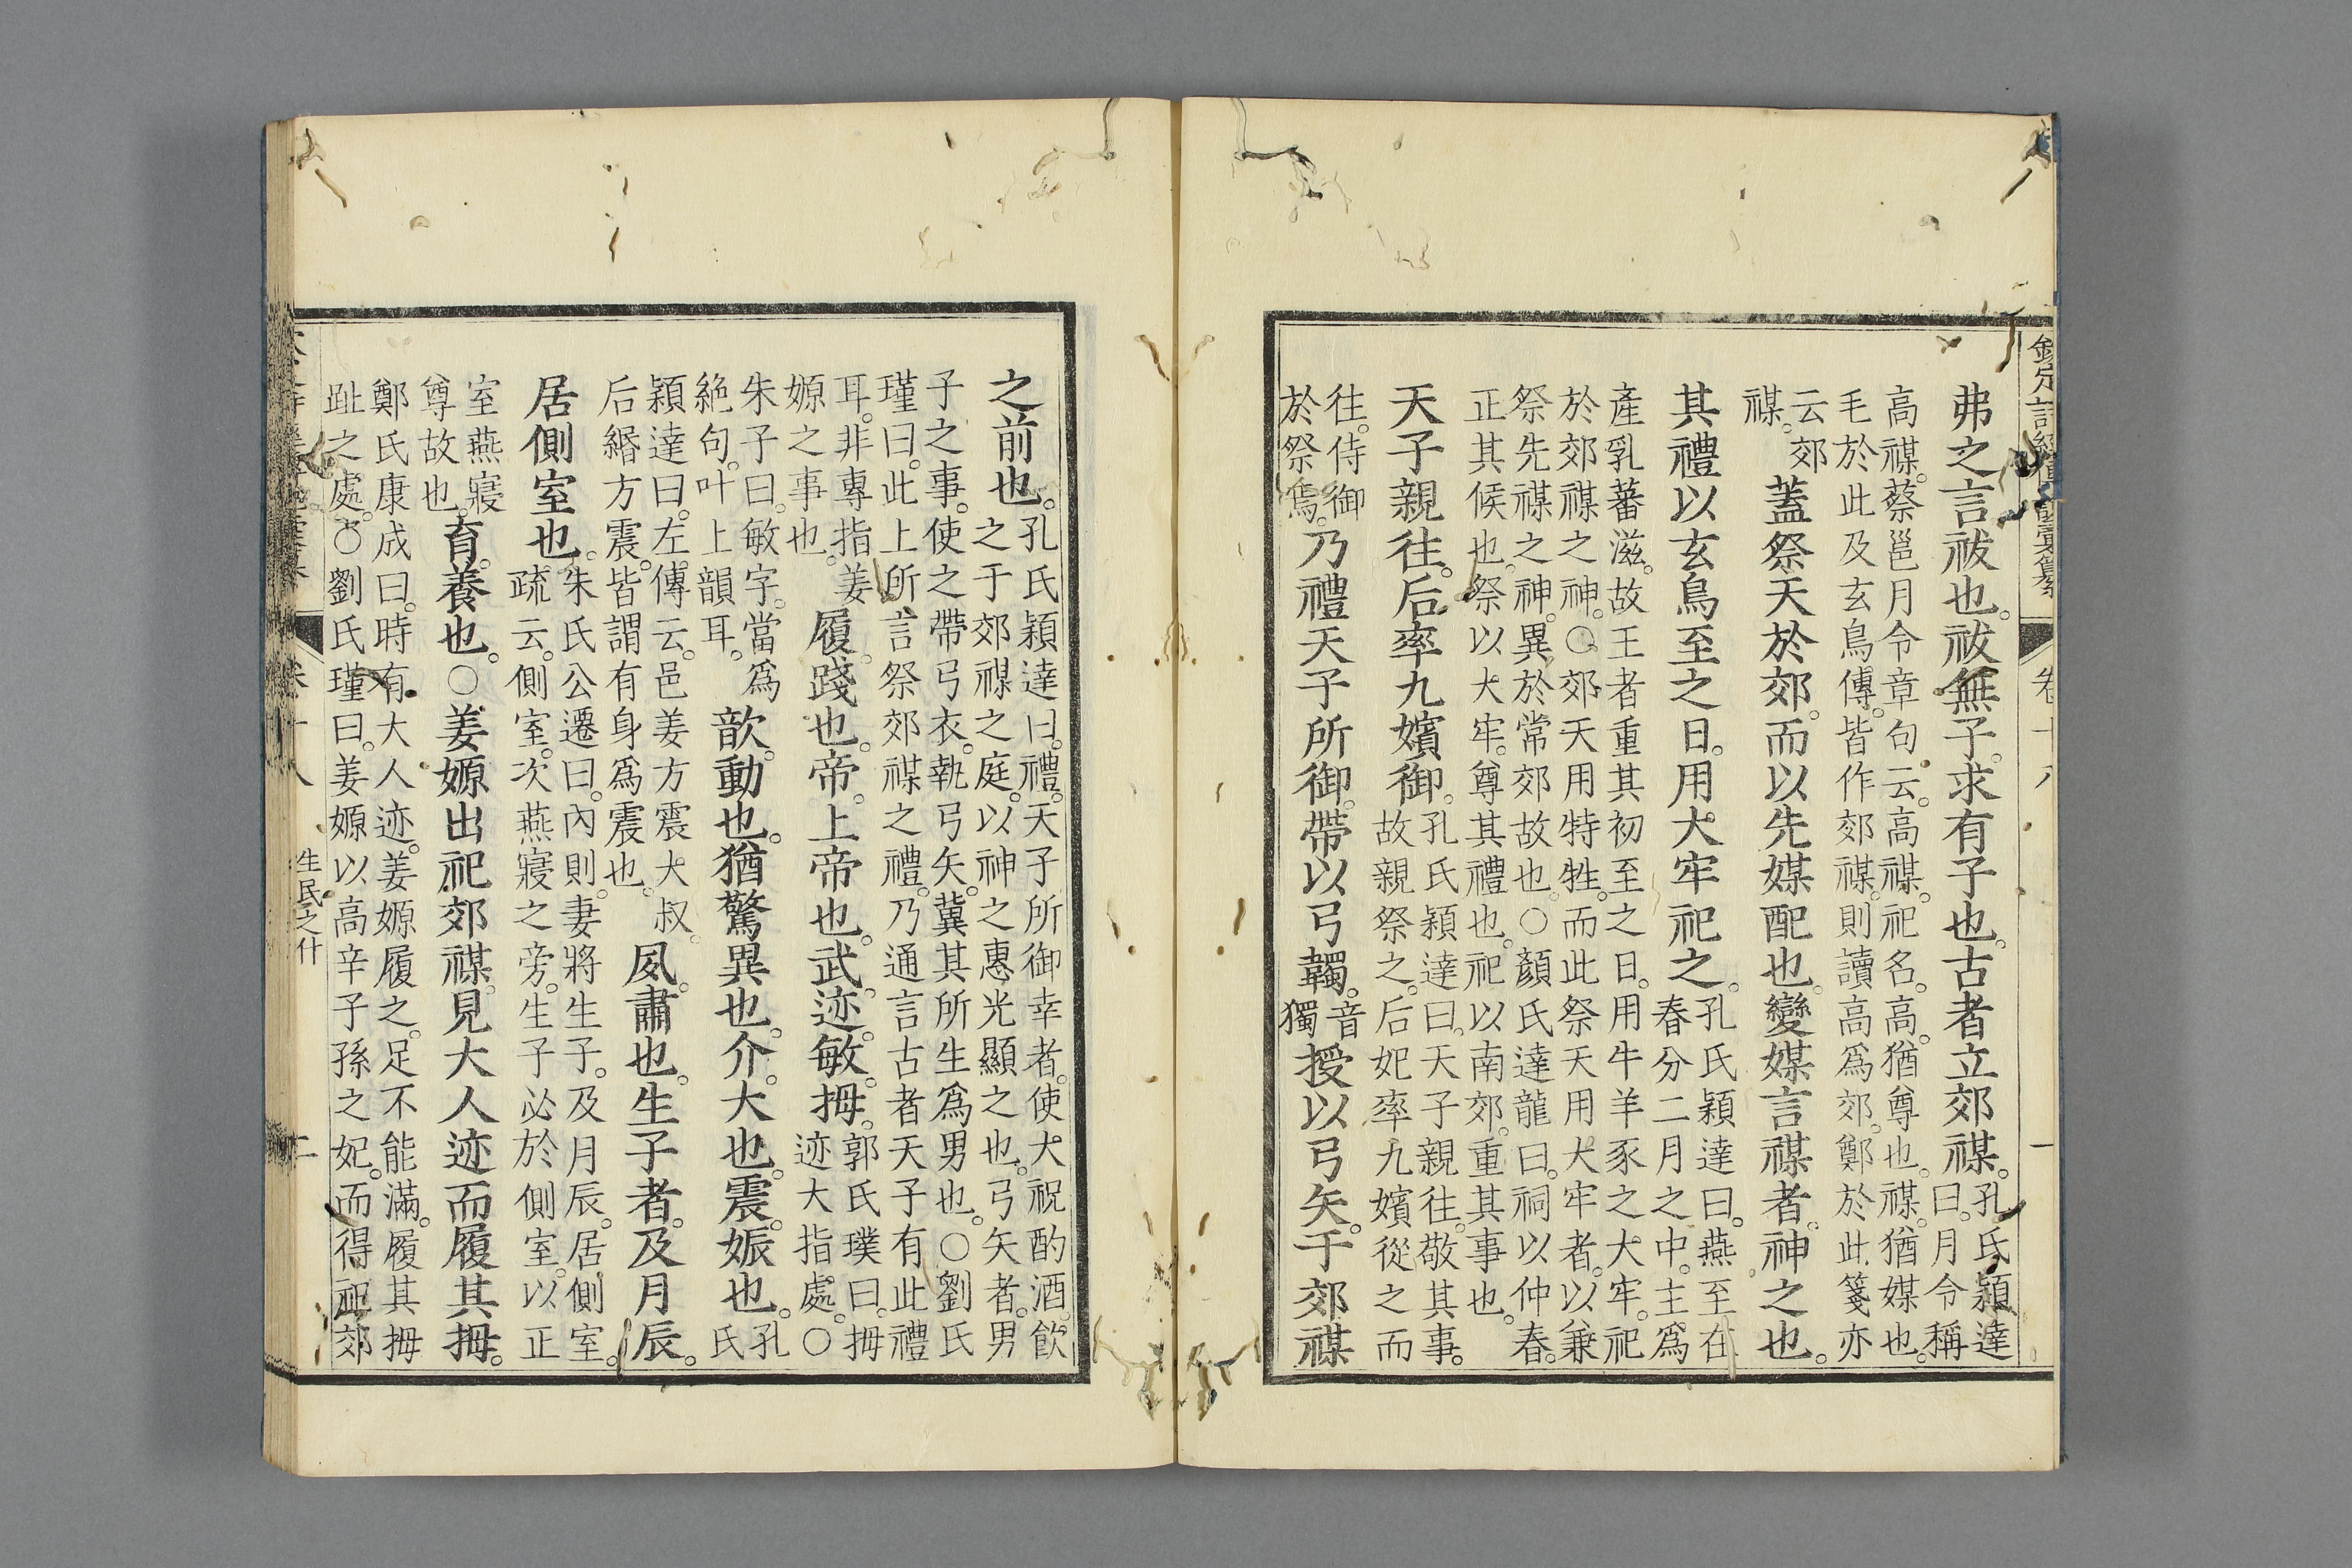 欽定詩經傳說彙纂 卷十八 一
弗之言祓也。祓無子。求有子也。古者立郊禖。孔氏穎達
曰。月令稱
高禖。蔡邕月令章句云。高禖。祀名。高。猶尊也。禖。猶媒也。
毛於此及玄鳥傳。皆作郊禖。則讀高爲郊。鄭於此箋亦
云郊
禖。蓋祭天於郊。而以先媒配也。變媒言禖者。神之也。
其禮以玄鳥至之日。用大牢祀之。孔氏穎達曰。燕至在
春分二月之中。主爲
產乳蕃滋。故王者重其初至之日。用牛羊豕之大牢。祀
於郊禖之神。○郊天用特牲。而此祭天用大牢者。以兼
祭先禖之神。異於常郊故也。○顏氏達龍曰。祠以仲春。
正其候也。祭以大牢。尊其禮也。祀以南郊。重其事也。
天子親往。后率九嬪御。孔氏穎達曰。天子親往。敬其事。
故親祭之。后妃率九嬪從之而
往。侍御
於祭焉。乃禮天子所御。帶以弓韣。音
獨授以弓矢。于郊禖
之前也。孔氏穎達曰。禮。天子所御幸者。使大祝酌酒。飮
之于郊禖之庭。以神之惠光顯之也。弓矢者。男
子之事。使之帶弓衣。執弓矢。冀其所生爲男也。○劉氏
瑾曰。此上所言祭郊禖之禮。乃通言古者天子有此禮
耳。非專指姜
嫄之事也。履。踐也。帝。上帝也。武。迹。敏。拇。郭氏璞曰。拇
迹大指處。○
朱子曰。敏字。當爲
絶句。叶上韻耳。歆。動也。猶驚異也。介。大也。震。娠也。孔
氏
穎達曰。左傳云。邑姜方震大叔。
后緡方震。皆謂有身爲震也。夙。肅也。生子者。及月辰。
居側室也。朱氏公遷曰。內則。妻將生子。及月辰。居側室。
疏云。側室。次燕寢之旁。生子必於側室。以正
室燕寢
尊故也。育。養也。○姜嫄出祀郊禖。見大人迹而履其拇。
鄭氏康成曰。時有大人迹。姜嫄履之。足不能滿。履其拇
趾之處。○劉氏瑾曰。姜嫄以高辛子孫之妃。而得祀郊
卷十八 生民之什 二